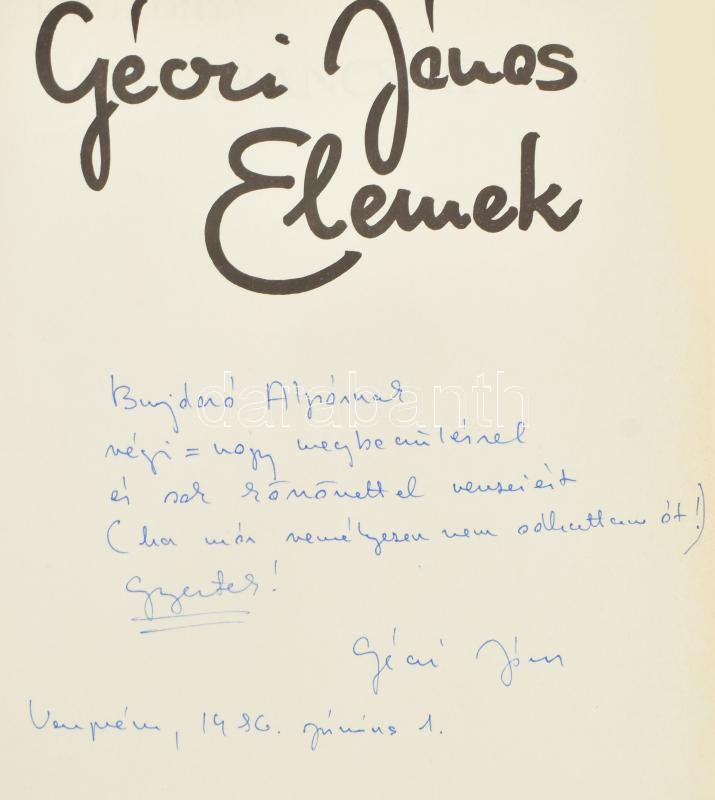 Géczi János
Elemek
darabanth
Bujdosó Alpárnak
régi = nagy megbecsüléssel
és sok köszönettel verseiért
(ha már személyesen nem adhattam át!)
Gyertek!
Géczi János
Veszprém, 1986. június 1.